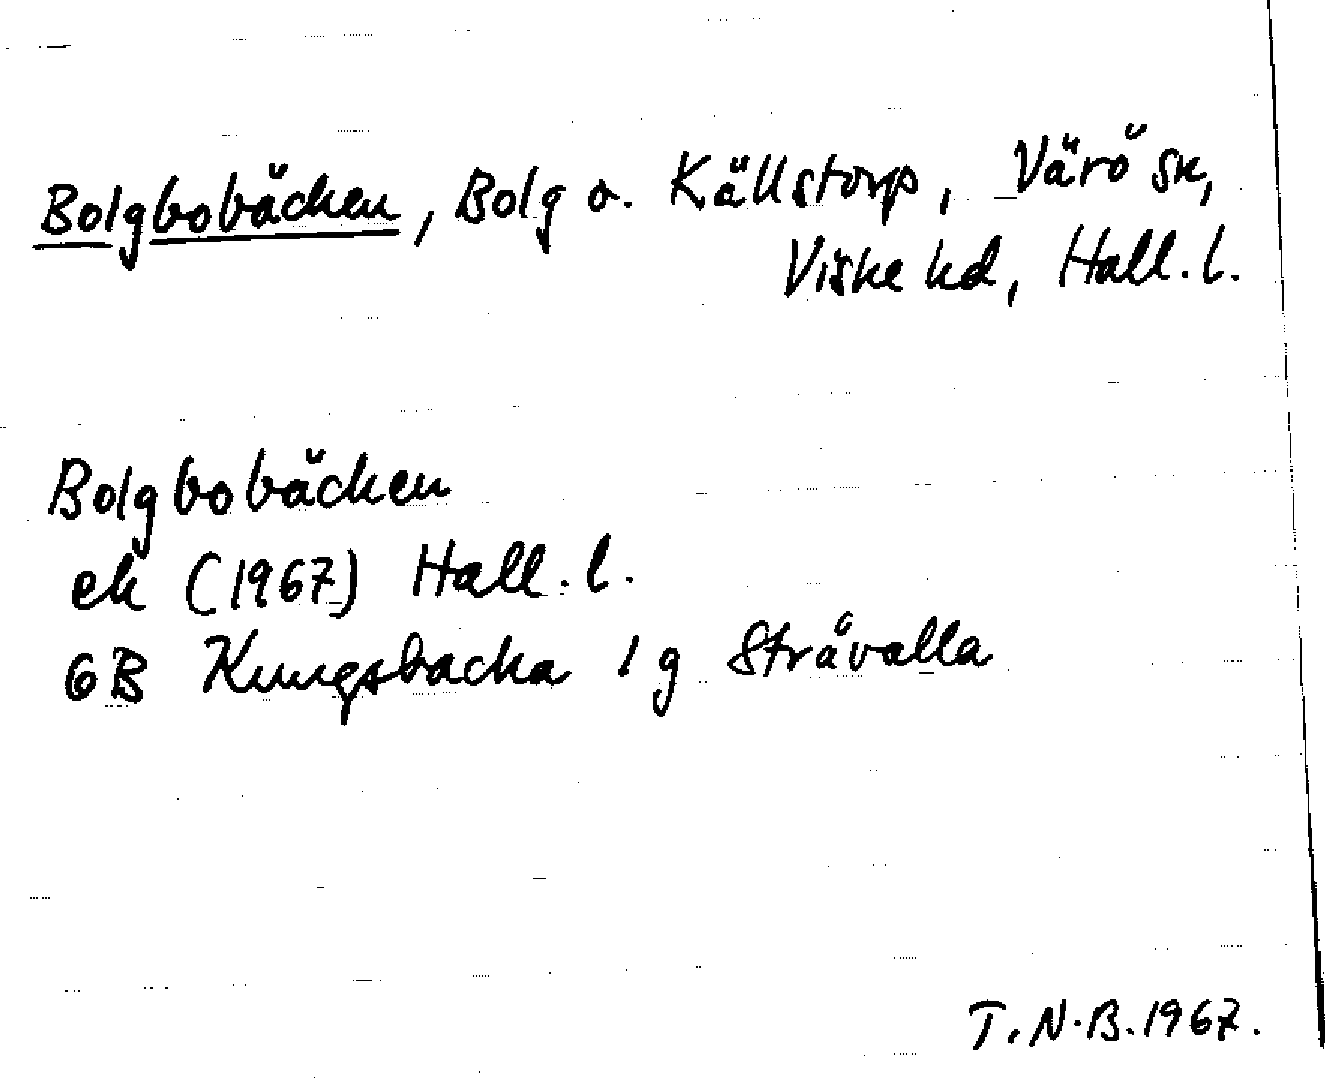 Bolgbobäcken, Bolg o. Källstorp, Värö sn,
Viske hd, Hall. l.
Bolgbobäcken
ek (1967) Hall. l.
6B Kungsbacka 1 g Stråvalla
T. N. B. 1967.